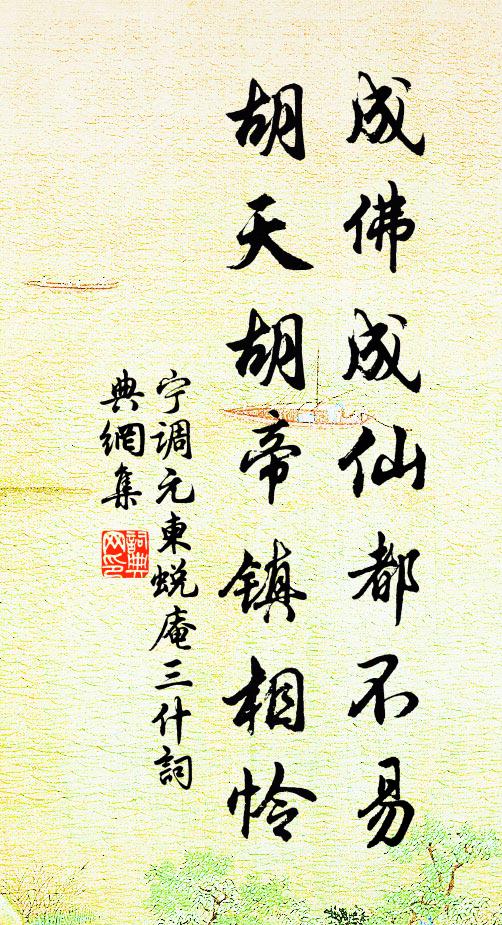 成佛成仙都不易
胡天胡帝镇相怜
宁调元東蜕庵三什詞
典網集
詞典
网印